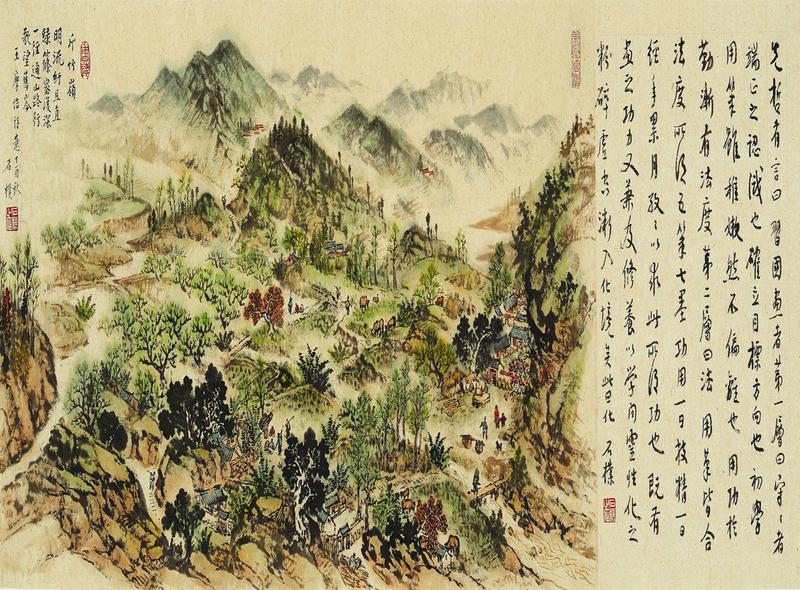 先哲有言曰習國畫者第一層曰守〻者
端正之認識也確立目標方向也初學
用筆雖稚嫩然不偏離也用功於
勤漸有法度第二層曰法用筆皆合
法度所謂五筆七墨功用一日技精一日
經年累月孜〻以求此所謂功也既有
畫之功力又兼及修養以學問靈性化之
粉碎虛空漸入化境矣此曰化 石樸
斤竹嶺
明流紆且直
綠篠密復深
一徑通山路行
歌望舊岑
王摩詰詩意丁酉秋
石樸